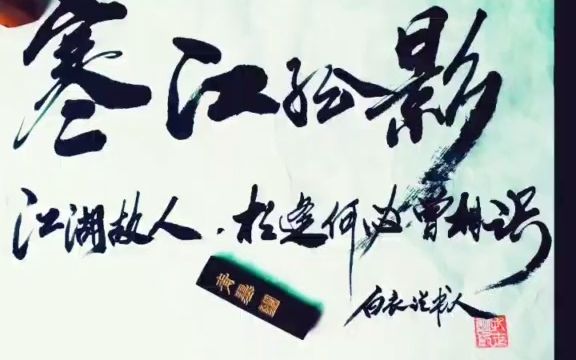 寒江孤影
江湖故人，相逢何必曾相识
白衣说书人